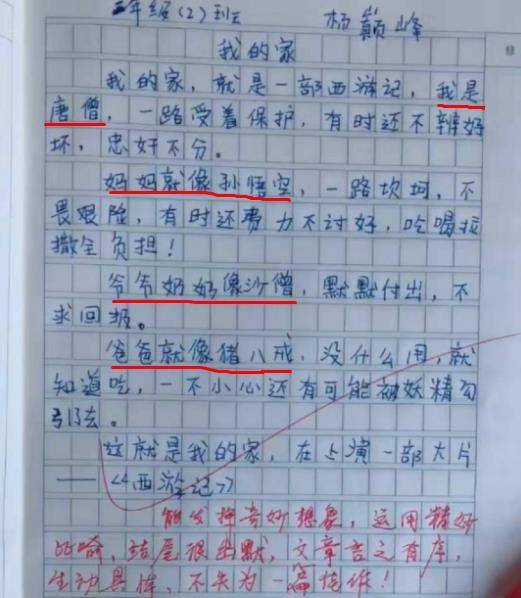 年级(2)班 杨巅峰
我的家
我的家，就是一部西游记，我是
唐僧，一路受着保护，有时还不辨好
坏，忠奸不分。
妈妈就像孙悟空，一路坎坷，不
畏艰险，有时还费力不讨好，吃喝拉
撒全负担！
爷爷奶奶像沙僧，默默付出，不
求回报。
爸爸就像猪八戒，没什么用，就
知道吃，一不小心还有可能被妖精勾
引去。
这就是我的家，在上演一部大片
——《西游记》
能发挥奇妙想象，运用精妙
比喻，结尾很幽默，文章言之有序，
生动具体，不失为一篇佳作！